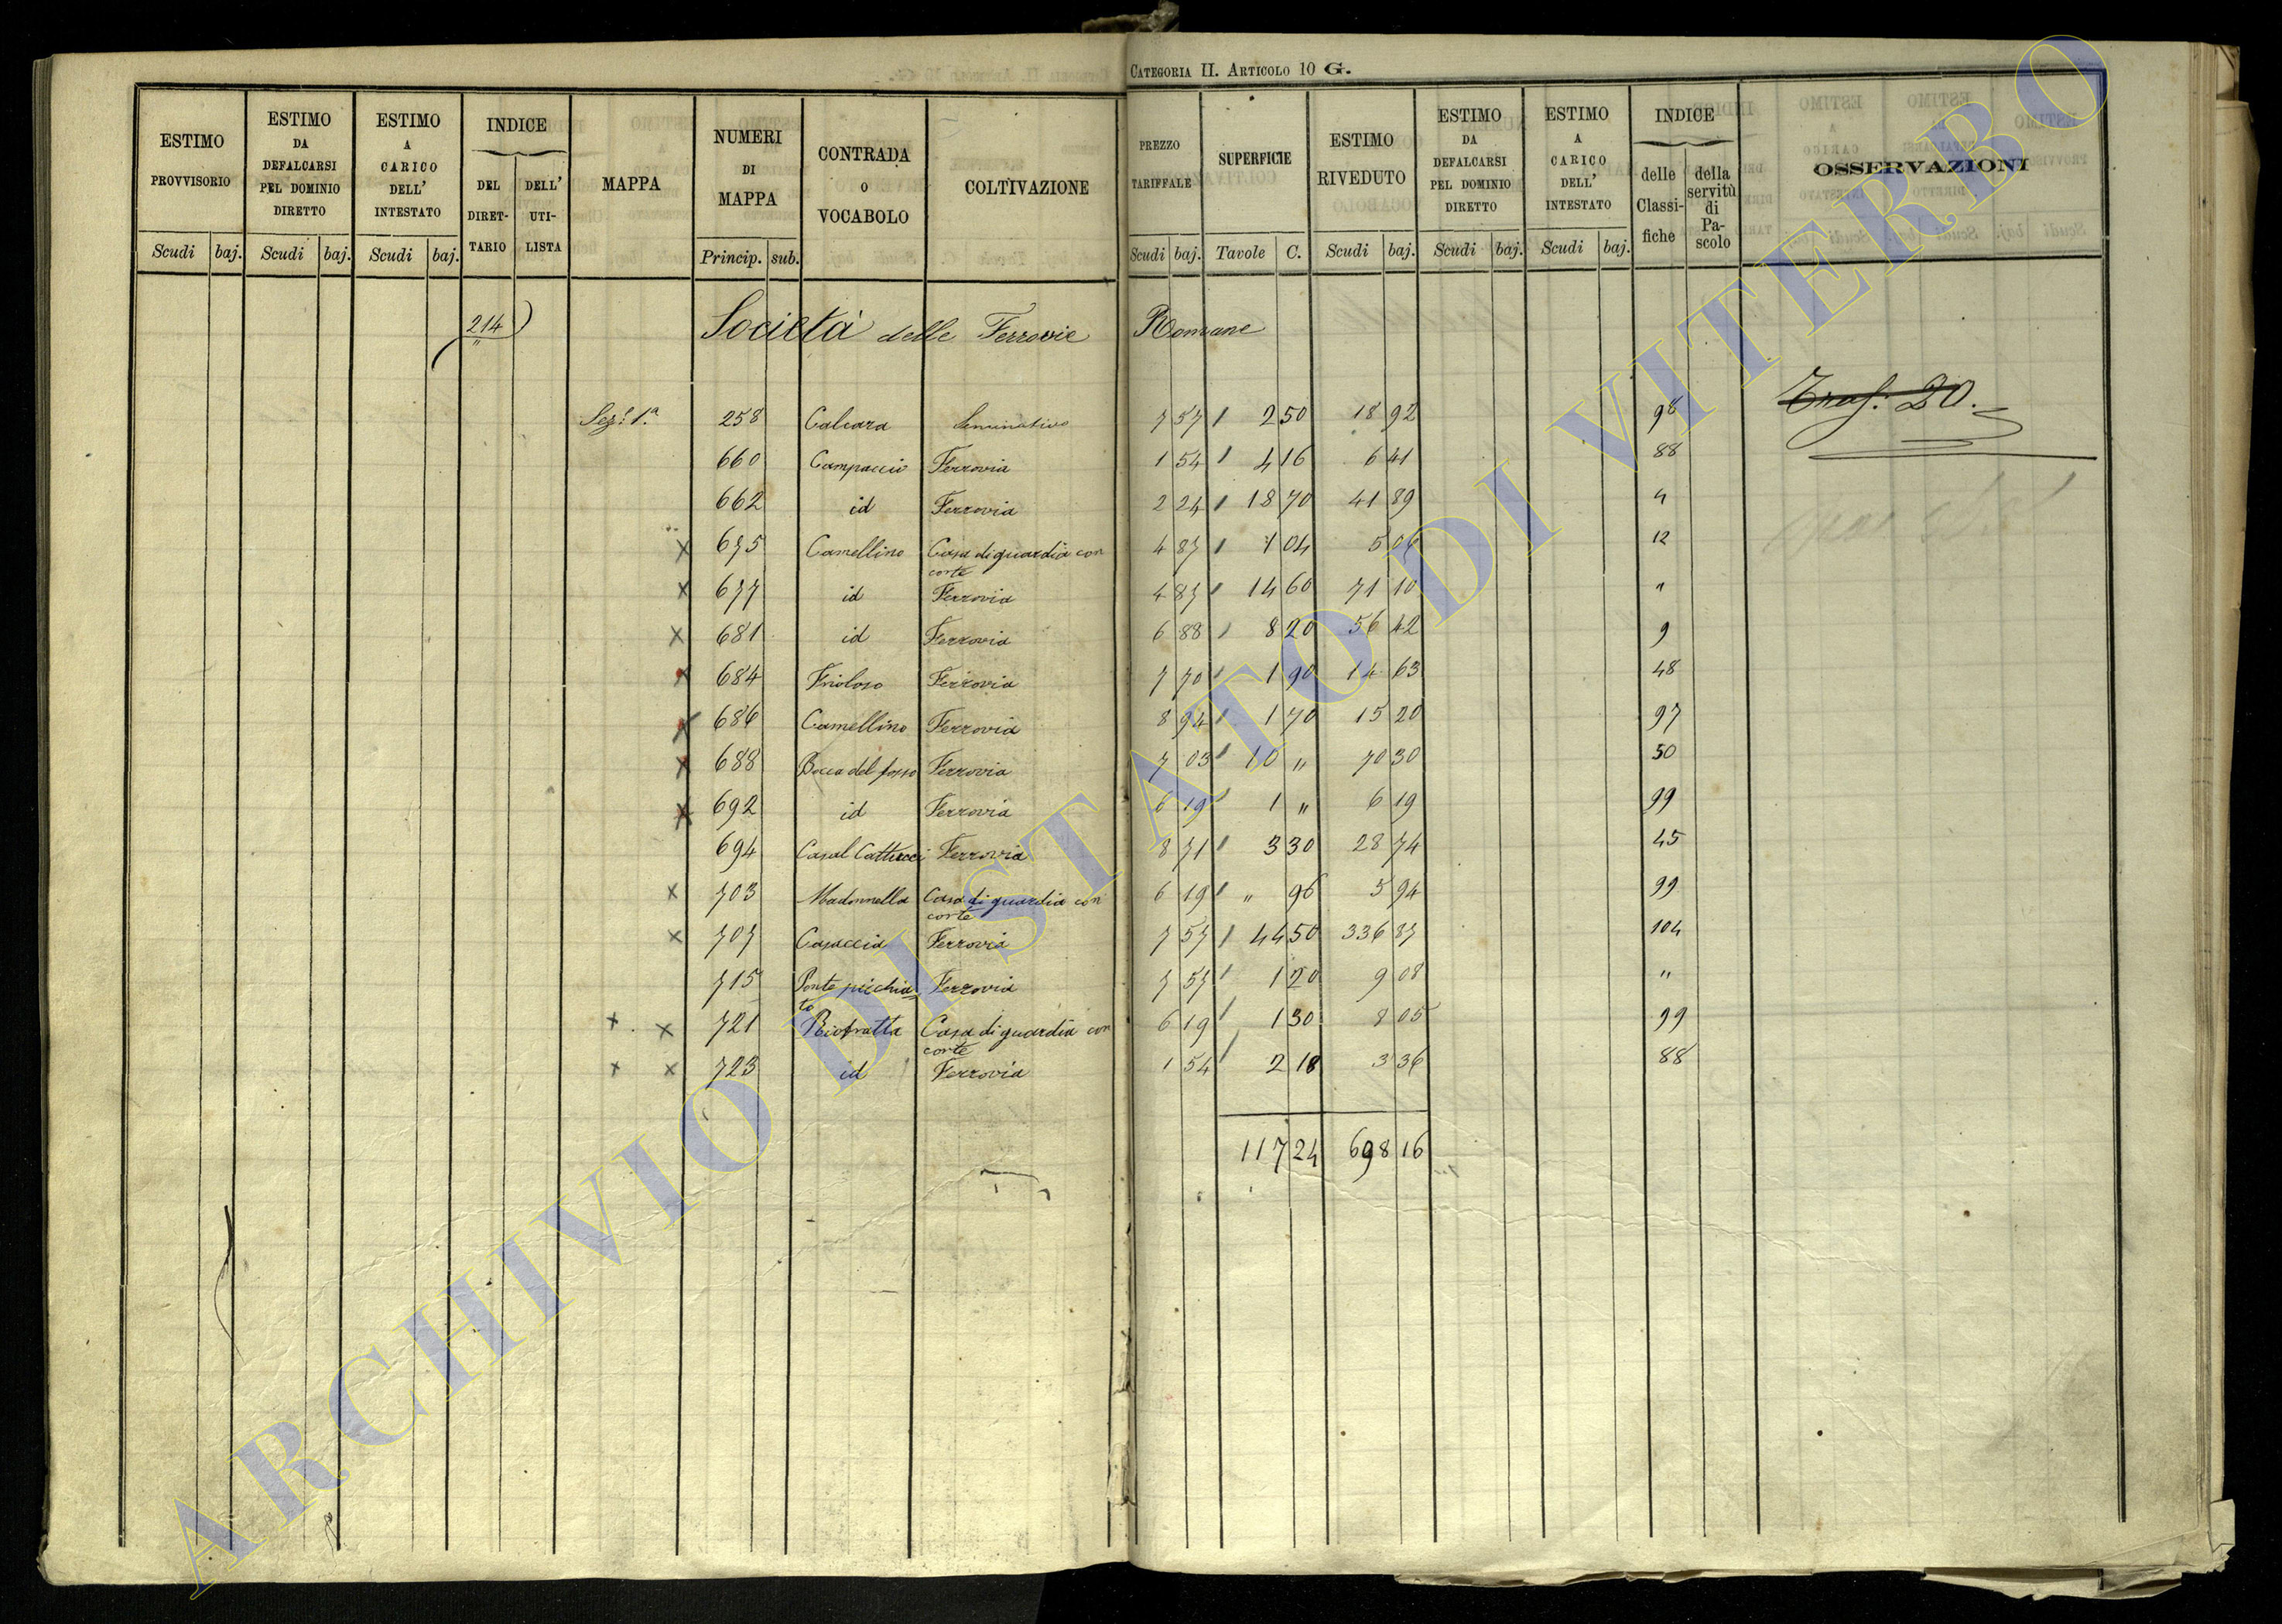 CATEGORIA II. ARTICOLO 10 G.
ESTIMO PROVVISORIO | ESTIMO DA DEFALCARSI PEL DOMINIO DIRETTO | ESTIMO A CARICO DELL' INTESTATO | INDICE DEL DIRET-TARIO | DELL' UTI-LISTA | MAPPA | NUMERI DI MAPPA | CONTRADA O VOCABOLO | COLTIVAZIONE | PREZZO TARIFFALE | SUPERFICIE | ESTIMO RIVEDUTO | ESTIMO DA DEFALCARSI PEL DOMINIO DIRETTO | ESTIMO A CARICO DELL' INTESTATO | INDICE delle Classi-fiche | della servitù di Pa-scolo | OSSERVAZIONI
Scudi | baj. | Scudi | baj. | Scudi | baj. | Princip. | sub. | Scudi | baj. | Tavole | C. | Scudi | baj. | Scudi | baj. | Scudi | baj.
214 Società delle Ferrovie Romane
Traf. 20.
Sez. 1ª 258 Calcara Seminativo 7 57 2 50 18 92 98
660 Campaccio Ferrovia 1 54 4 16 6 41 88
662 id Ferrovia 2 24 18 70 41 89 4
x 675 Camellino Casa di guardia con corte 4 87 1 04 5 06 12
x 677 id Ferrovia 4 87 14 60 71 10 "
x 681 id Ferrovia 6 88 8 20 56 42 9
x 684 Ferrovia 7 70 1 90 14 63 48
x 686 Camellino Ferrovia 8 94 1 70 15 20 97
x 688 Bocca del fosso Ferrovia 7 03 10 " 70 30 50
x 692 id Ferrovia 6 19 1 " 6 19 99
694 Casal Cattucci Ferrovia 8 71 3 30 28 74 45
x 703 Madonnella Casa di guardia con corte 6 19 " 96 5 94 99
x 707 Casaccia Ferrovia 7 57 44 50 336 87 104
715 Ponte picchiato Ferrovia 7 57 1 20 9 08 "
x x 721 Riofratta Casa di guardia con corte 6 19 1 30 8 05 99
x x 723 id Ferrovia 1 54 2 18 3 36 88
117 24 698 16
ARCHIVIO DI STATO DI VITERBO